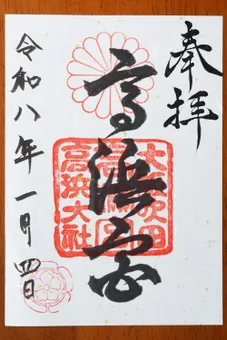 奉拝
高浜宮
高浜大社
令和八年一月四日